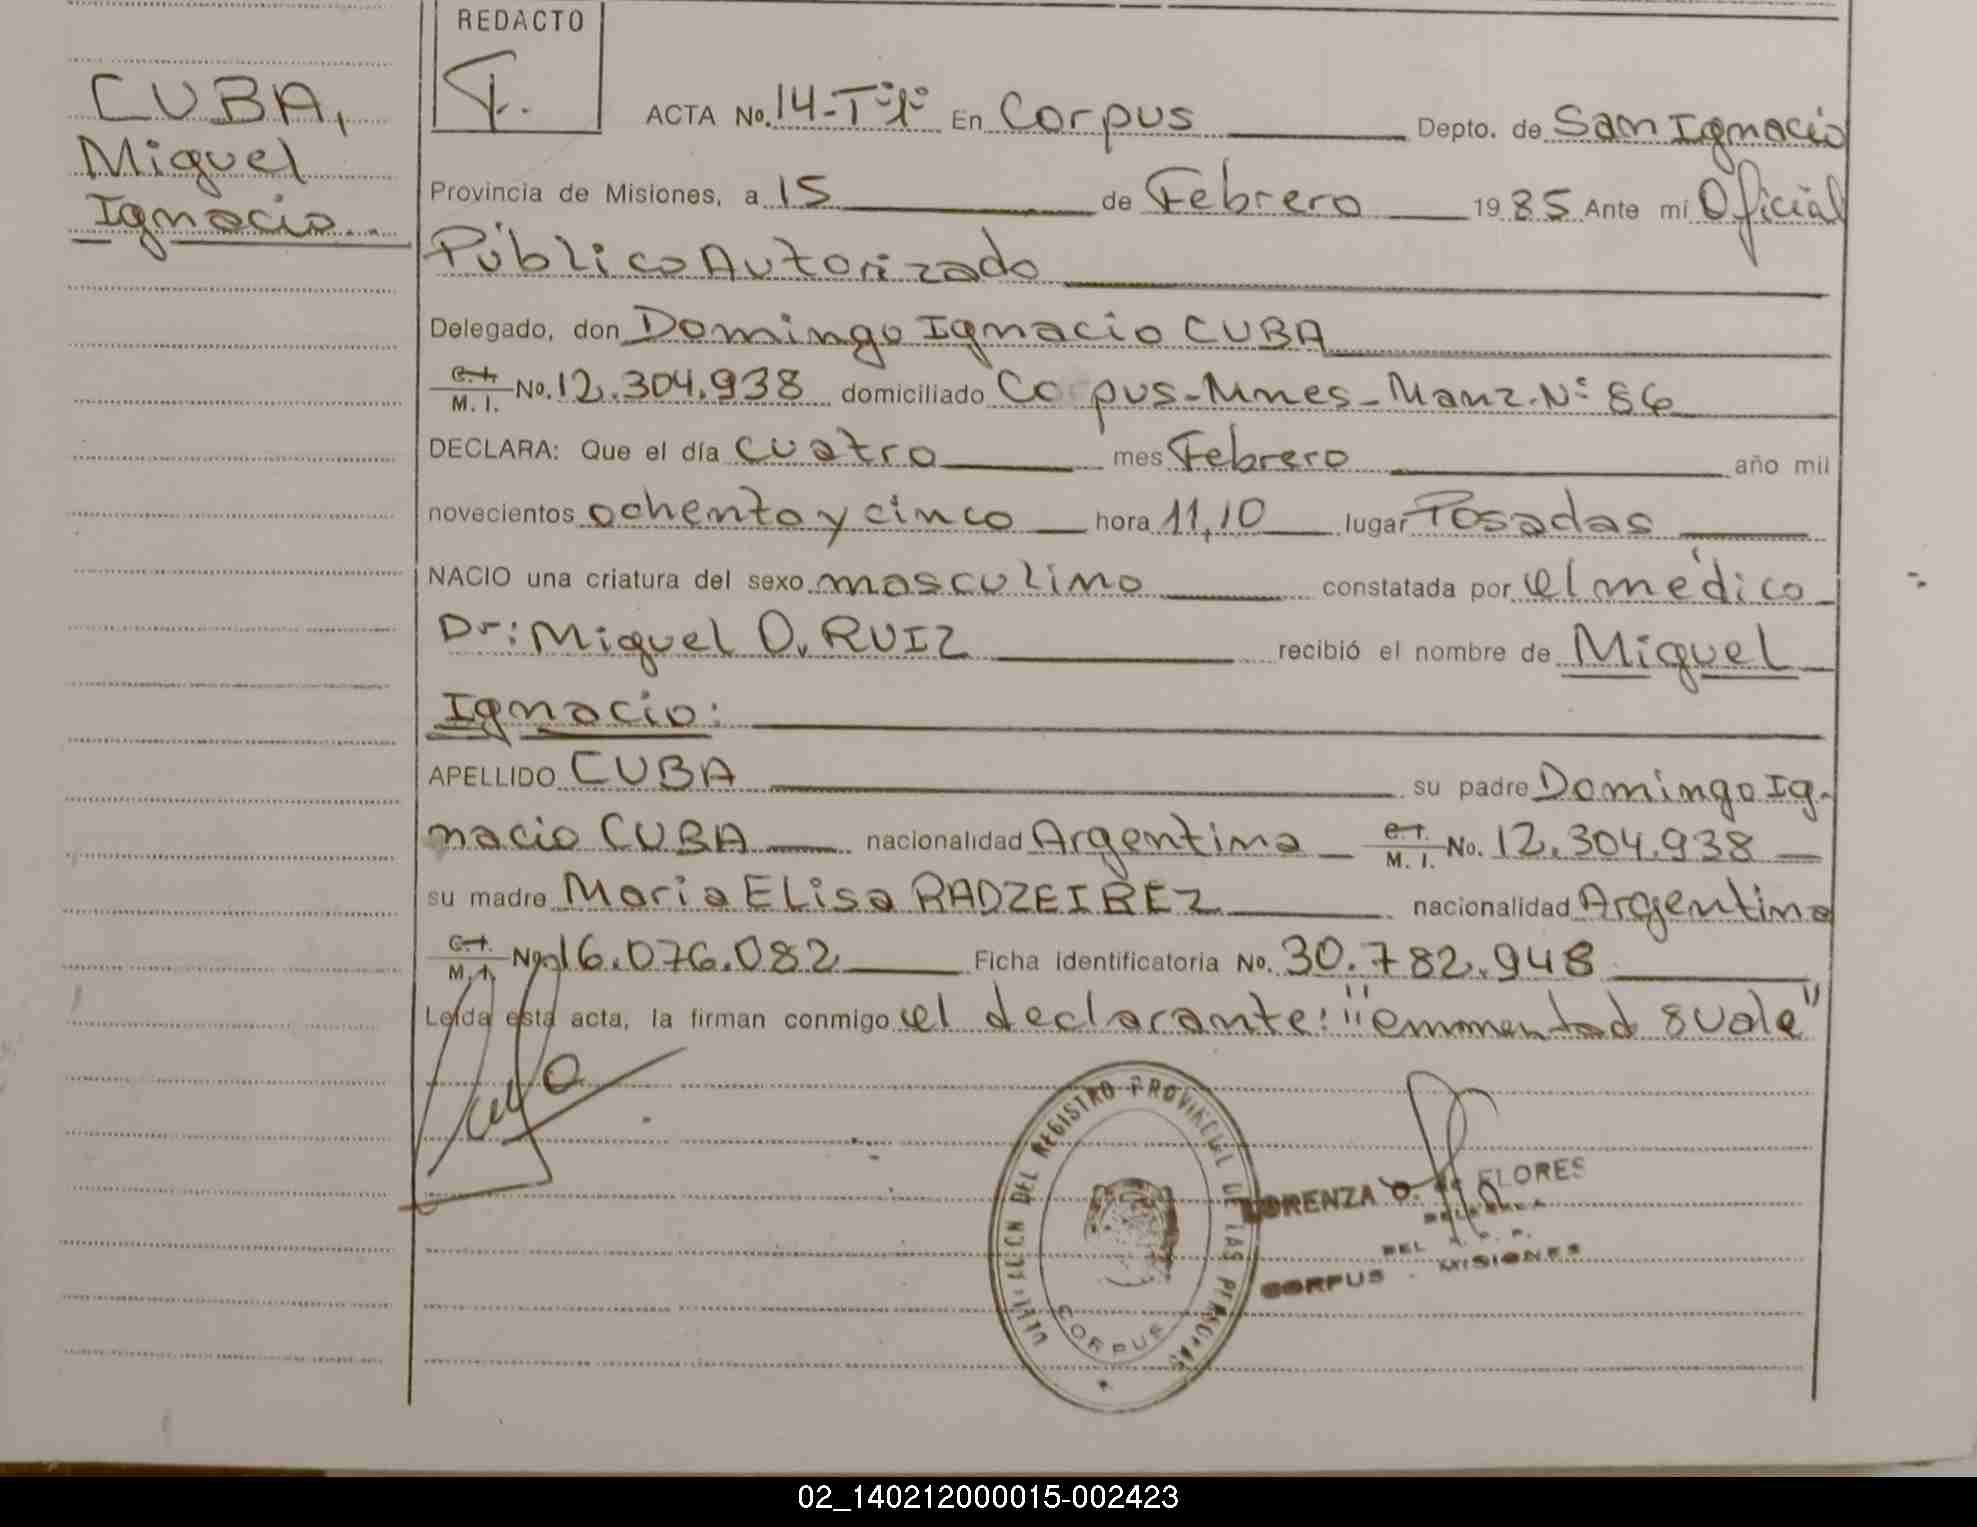 REDACTO
CUBA,
Miguel
Ignacio..
ACTA No. 14-Tº1º En Corpus Depto. de San Ignacio
Provincia de Misiones, a 15 de Febrero 1985 Ante mí Oficial
Público Autorizado
Delegado, don Domingo Ignacio CUBA
C.I. M. I. No. 12.304.938 domiciliado Corpus-Mnes-Manz.Nº 86
DECLARA: Que el día cuatro mes Febrero año mil
novecientos ochenta y cinco hora 11,10 lugar Posadas
NACIO una criatura del sexo masculino constatada por el médico
Dr: Miguel O. RUIZ recibió el nombre de Miguel
Ignacio:
APELLIDO CUBA su padre Domingo Ig-
nacio CUBA nacionalidad Argentina C.I. M. I. No. 12.304.938
su madre Maria Elisa RADZEIREZ nacionalidad Argentina
C.I. M. I. No. 16.076.082 Ficha identificatoria No. 30.782.948
Leída esta acta, la firman conmigo el declarante: "emmentad 8 vale"
DEL REGISTRO PROVINCIAL DE LAS PERSONAS
CORPUS
LORENZA O. de FLORES
DELEGADA
DEL R. P. P.
CORPUS - MISIONES
02_140212000015-002423